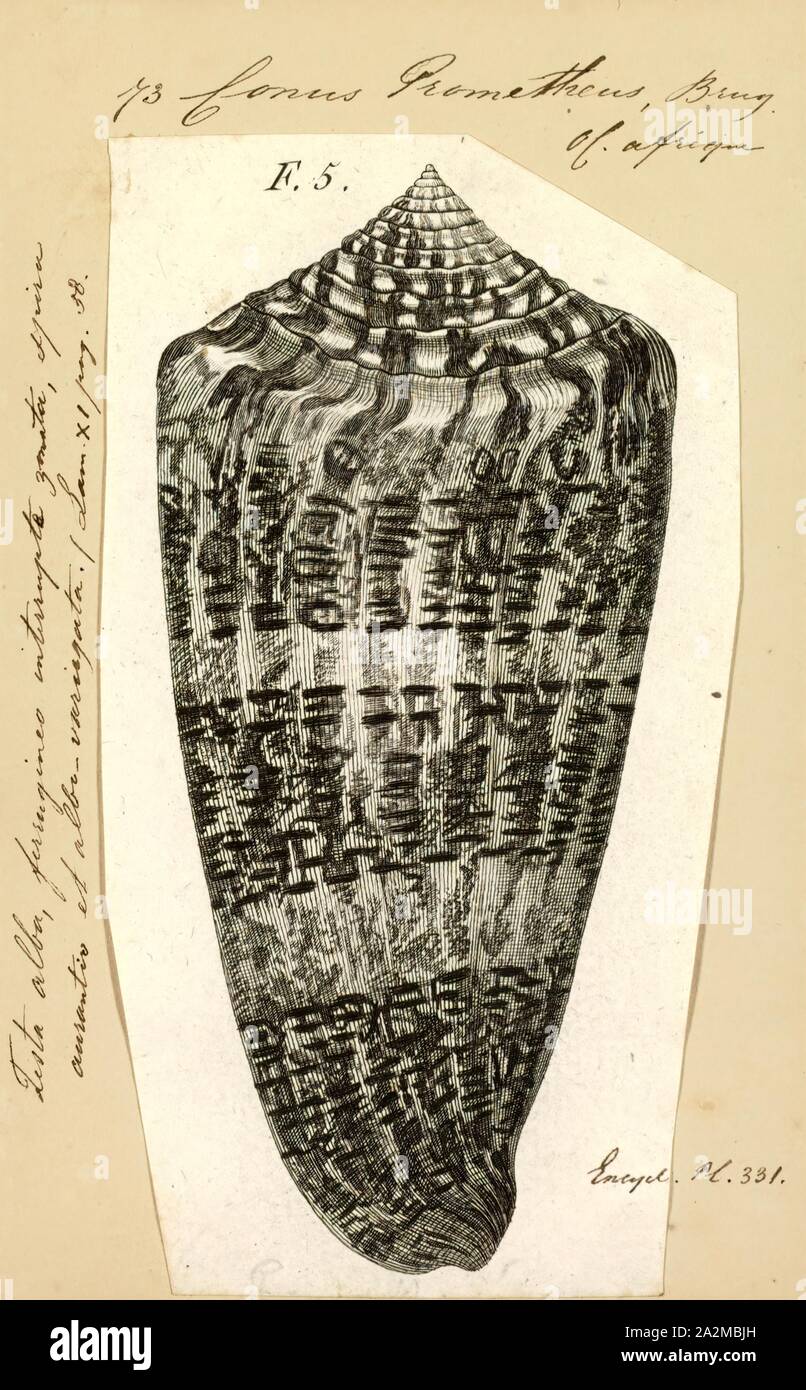 73 Conus Prometheus, Brug.
Oc. afrique
F. 5.
Testa alba, ferrugineo interrupte zonata, spira
aurantio et albo-variegata. (Lam. XI pag. 58.
Encycl. Pl. 331.
alamy
alamy
Image ID: A2MBJH
www.alamy.com